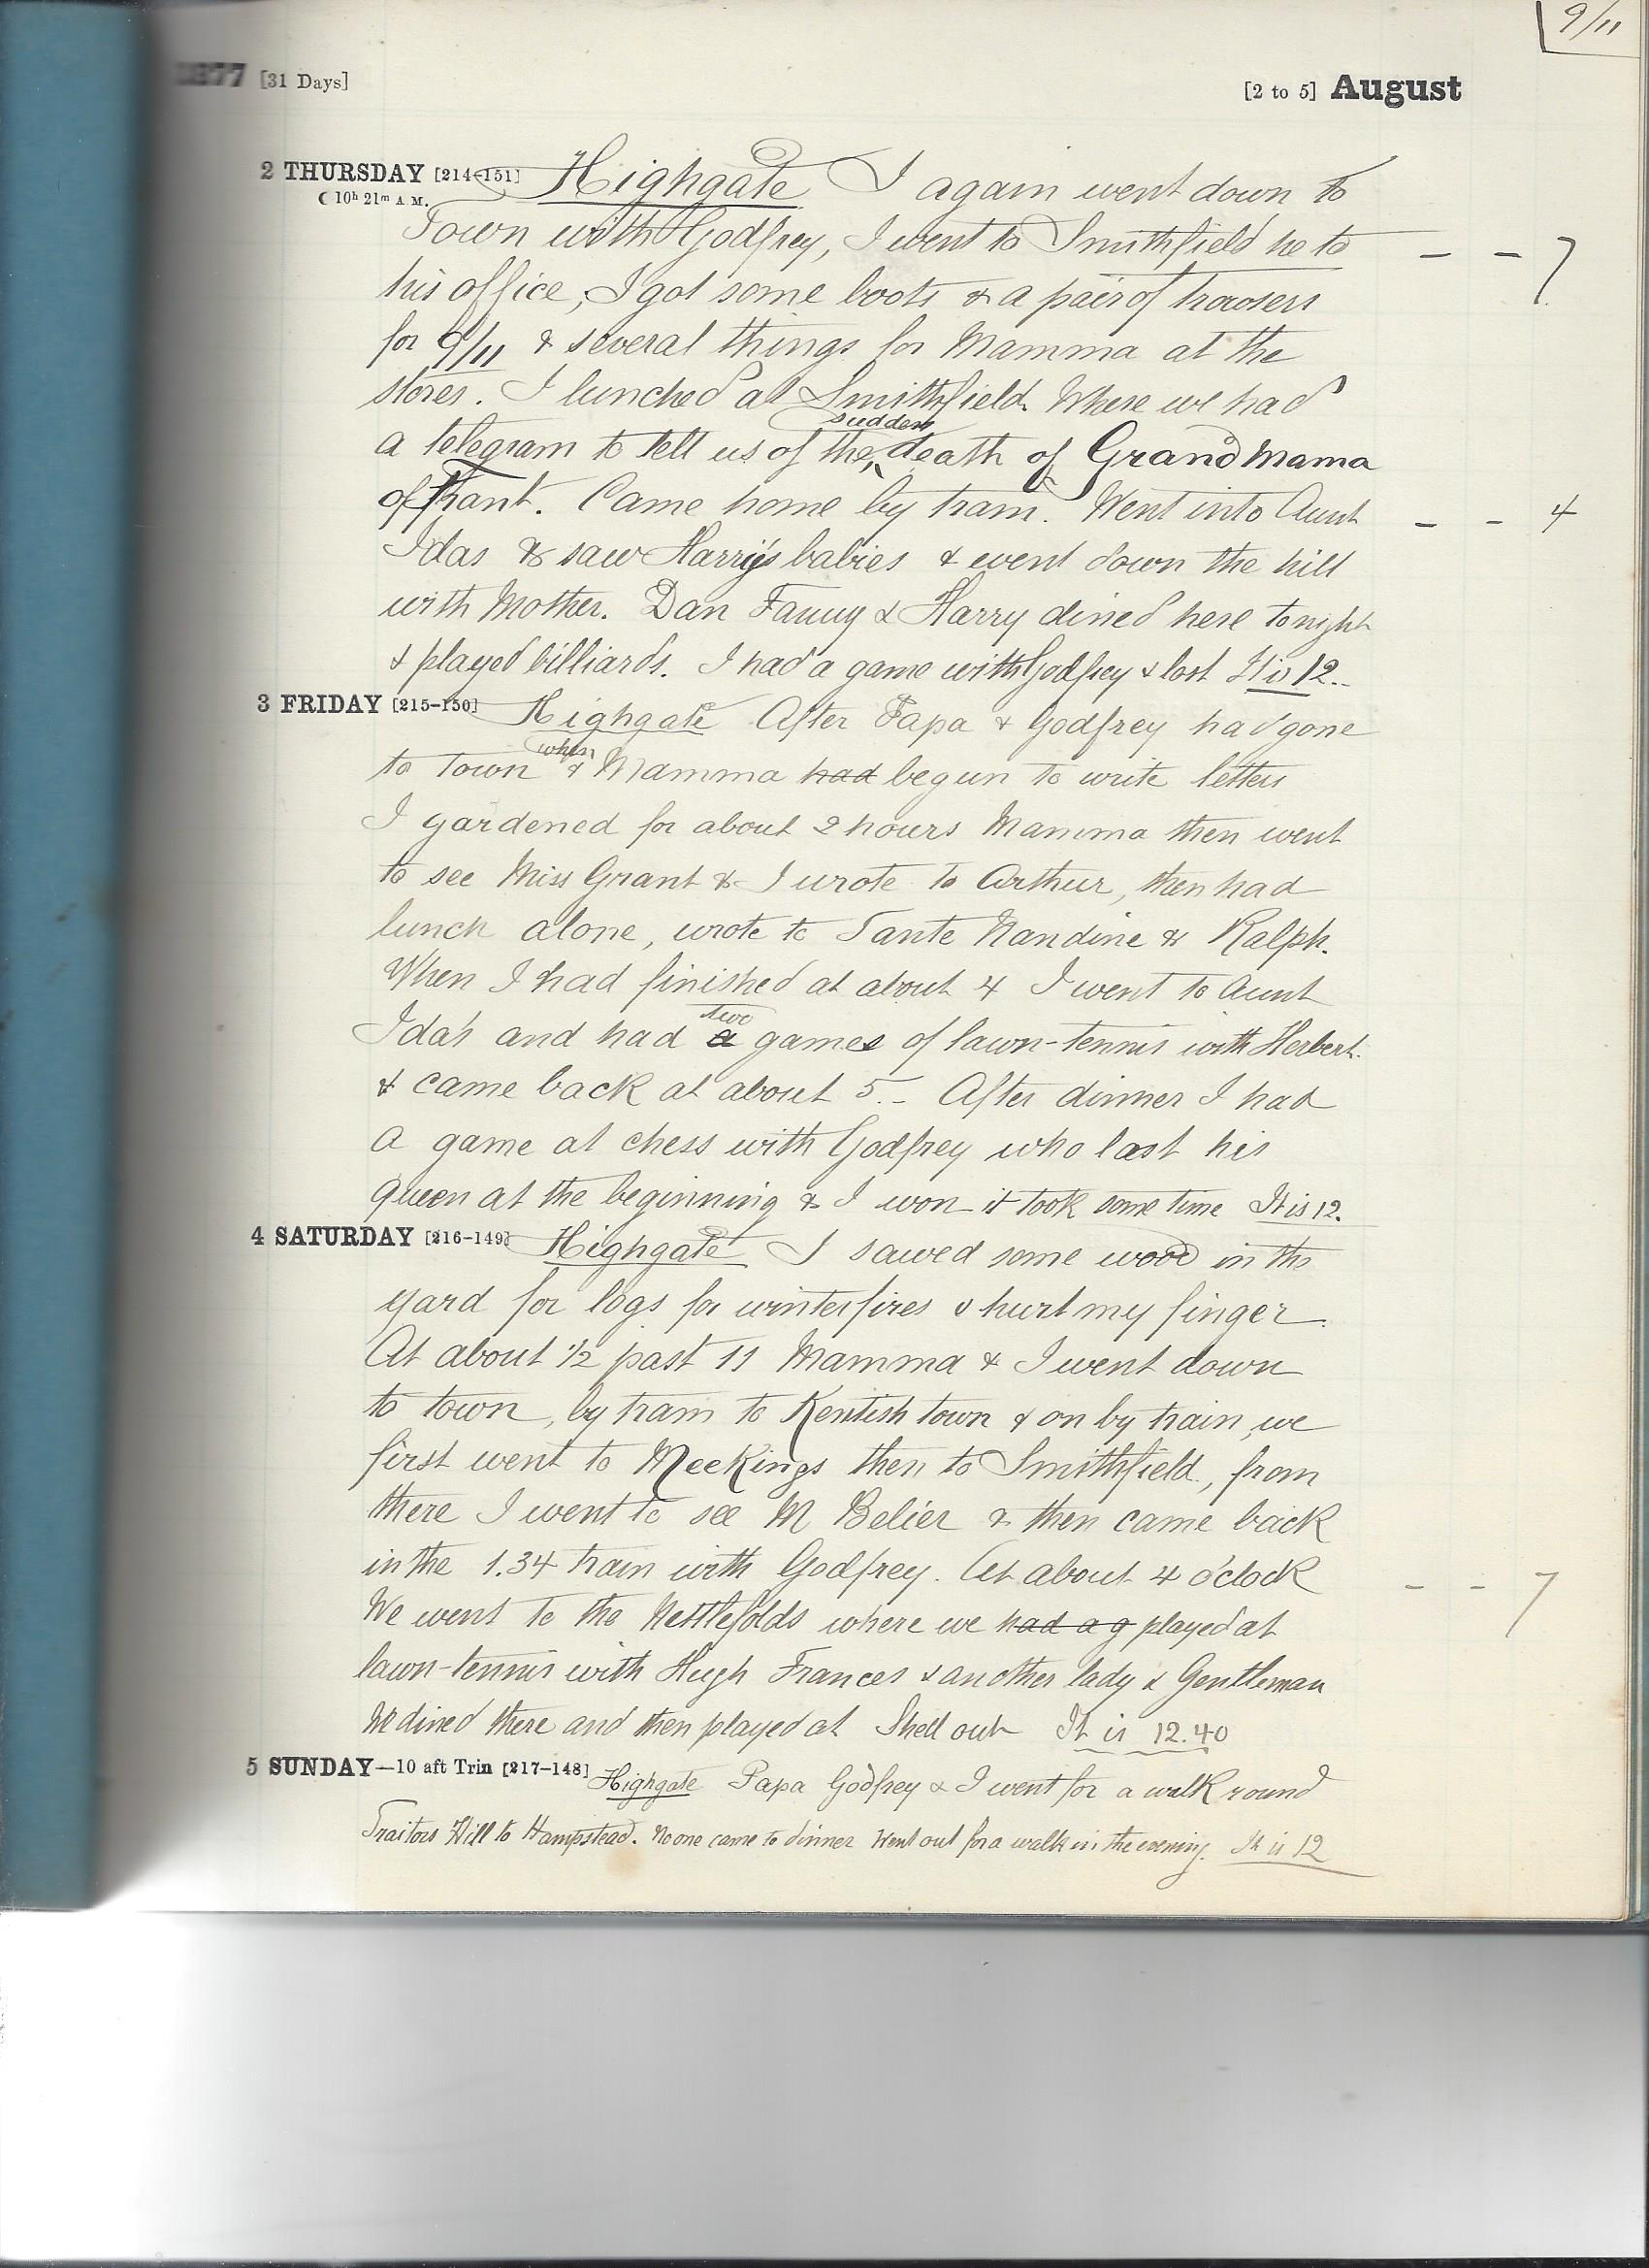 9/11
1877 [31 Days] [2 to 5] August
2 THURSDAY [214-151] Highgate I again went down to
☾ 10h 21m A.M.
Town with Godfrey, I went to Smithfield he to - - 7
his office, I got some boots & a pair of trowsers
for 9/11 & several things for Mamma at the
stores. I lunched at Smithfield. Where we had
a telegram to tell us of the sudden death of Grandmama
of Thant. Came home by tram. Went into Aunt - - 4
Idas & saw Harry's babies & went down the hill
with Mother. Dan Fanny & Harry dined here tonight
& played billiards. I had a game with Godfrey & lost It is 12..
3 FRIDAY [215-150] Highgate After Papa & Godfrey had gone
to Town & when Mamma had begun to write letters
I gardened for about 2 hours Mamma then went
to see Miss Grant & I wrote to Arthur, then had
lunch alone, wrote to Tante Nandine & Ralph.
When I had finished at about 4 I went to Aunt
Ida's and had a two games of lawn-tennis with Herbert.
& came back at about 5.- After dinner I had
a game at chess with Godfrey who lost his
queen at the beginning & I won it took some time It is 12.
4 SATURDAY [216-149] Highgate I sawed some wood in the
yard for logs for winter fires & hurt my finger.
At about ½ past 11 Mamma & I went down
to town, by tram to Kentish town & on by train, we
first went to Meekings then to Smithfield, from
there I went to see M Belier & then came back
in the 1.34 train with Godfrey. At about 4 o'clock - - 7
We went to the Nettlefolds where we had a g played at
lawn-tennis with Hugh Frances & another lady & Gentleman
We dined there and then played at Shell out It is 12.40
5 SUNDAY—10 aft Trin [217-148] Highgate Papa Godfrey & I went for a walk round
Traitors Hill to Hampstead. No one came to dinner Went out for a walk in the evening. It is 12